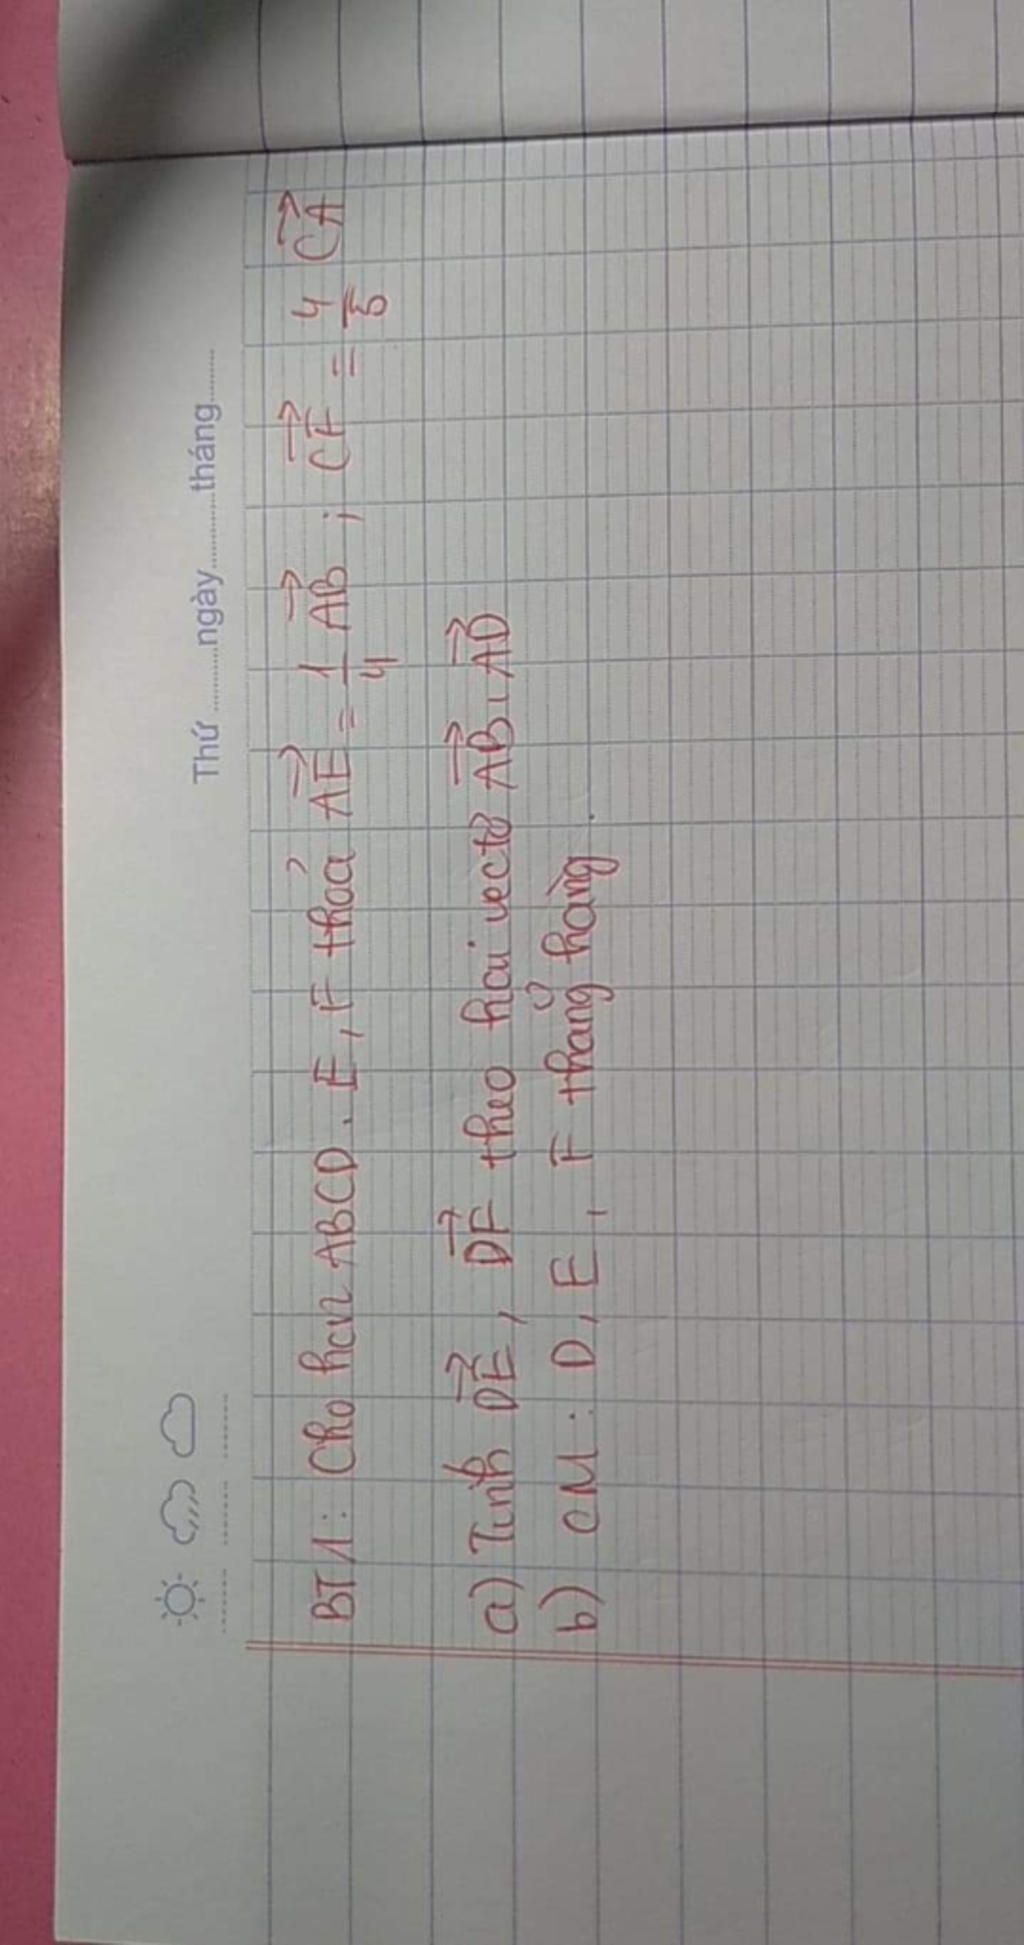 Thứ ..........ngày...........tháng..........
BT1: Cho hcn ABCD. E, F thoả AE = 1/4 AB ; CF = 4/5 CA
a) Tính DE, DF theo hai vectơ AB, AD
b) CM: D, E, F thẳng hàng.